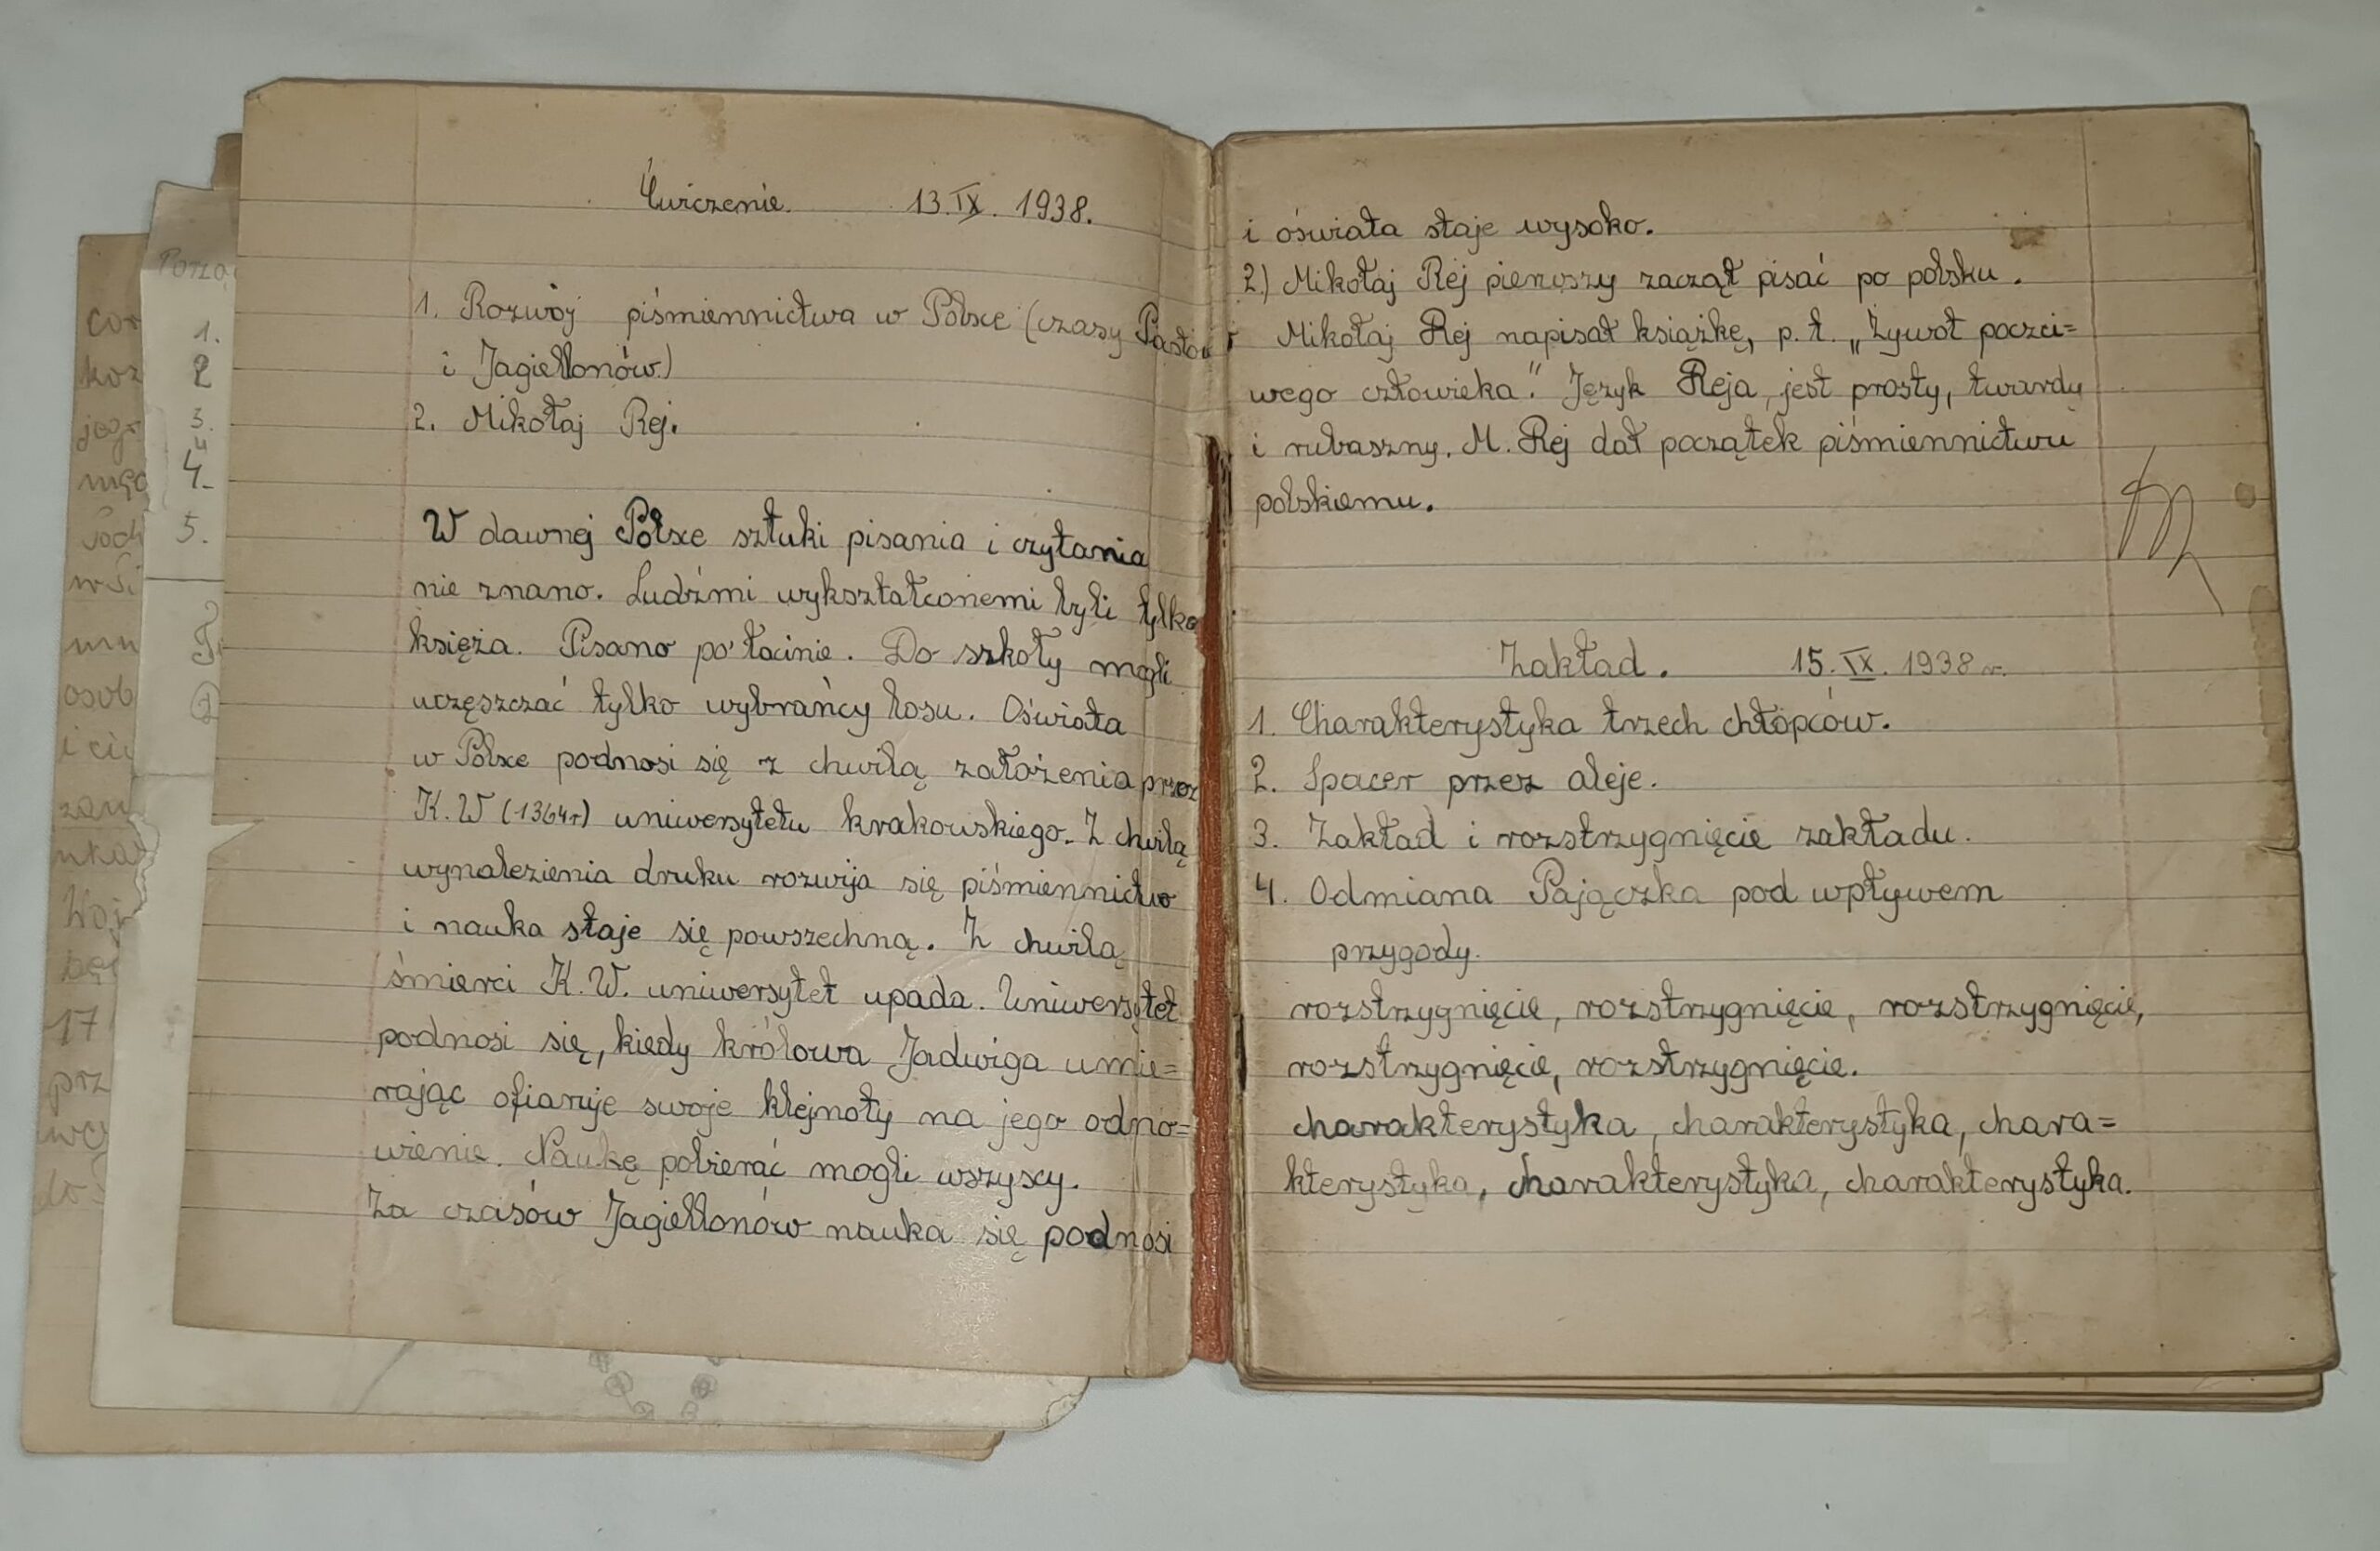 Ćwiczenie. 13.IX. 1938.
1. Rozwój piśmiennictwa w Polsce (czasy Piastów
i Jagiellonów.)
2. Mikołaj Rej.
W dawnej Polsce sztuki pisania i czytania
nie znano. Ludźmi wykształconemi byli tylko
księża. Pisano po łacinie. Do szkoły mogli
uczęszczać tylko wybrańcy losu. Oświata
w Polsce podnosi się z chwilą założenia przez
K.W (1364r) uniwersytetu krakowskiego. Z chwilą
wynalezienia druku rozwija się piśmiennictwo
i nauka staje się powszechną. Z chwilą
śmierci K.W. uniwersytet upada. Uniwersytet
podnosi się, kiedy królowa Jadwiga umie=
rając ofiaruje swoje klejnoty na jego odno=
wienie. Naukę pobierać mogli wszyscy.
Za czasów Jagiellonów nauka się podnosi
i oświata staje wysoko.
2.) Mikołaj Rej pierwszy zaczął pisać po polsku.
Mikołaj Rej napisał książkę, p.t. „Żywot poczci=
wego człowieka." Język Reja, jest prosty, twardy
i rubaszny. M. Rej dał początek piśmiennictwu
polskiemu.
Zakład. 15.IX.1938 r.
1. Charakterystyka trzech chłopców.
2. Spacer przez aleje.
3. Zakład i rozstrzygnięcie zakładu.
4. Odmiana Pajączka pod wpływem
przygody.
rozstrzygnięcie, rozstrzygnięcie, rozstrzygnięcie,
rozstrzygnięcie, rozstrzygnięcie.
charakterystyka, charakterystyka, chara=
kterystyka, charakterystyka, charakterystyka.
1.
2
3.
4.
5.
17